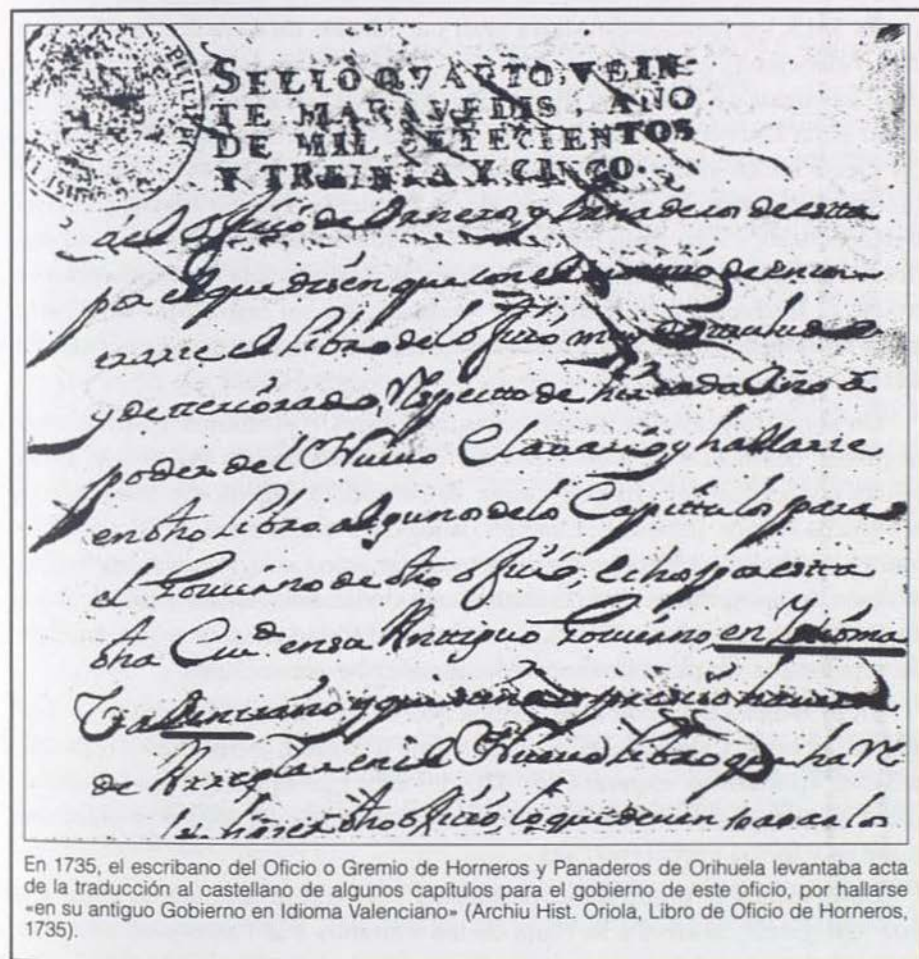 PHILIPP
SELLO QVARTO, VEIN-
TE MARAVEDIS, AÑO
DE MIL SETECIENTOS
Y TREINTA Y CINCO.
del ofizio de y Panaderos de esta
por el que disen que con el de
el Libro del ofizio
y deteriorado, Respecto de hir cada Año à
poder del Nuevo Clavario y hallarse
en dho Libro algunos delos Capittulos para
el Govierno de dho ofizio, echos por estta
dha Ciud. en su Anttiguo Govierno en Ydioma
Valenciano y que
de Arreglar en el Nuevo Libro que ha de
hazer dho ofizio, lo que para los
En 1735, el escribano del Oficio o Gremio de Horneros y Panaderos de Orihuela levantaba acta
de la traducción al castellano de algunos capítulos para el gobierno de este oficio, por hallarse
«en su antiguo Gobierno en Idioma Valenciano» (Archiu Hist. Oriola, Libro de Oficio de Horneros,
1735).